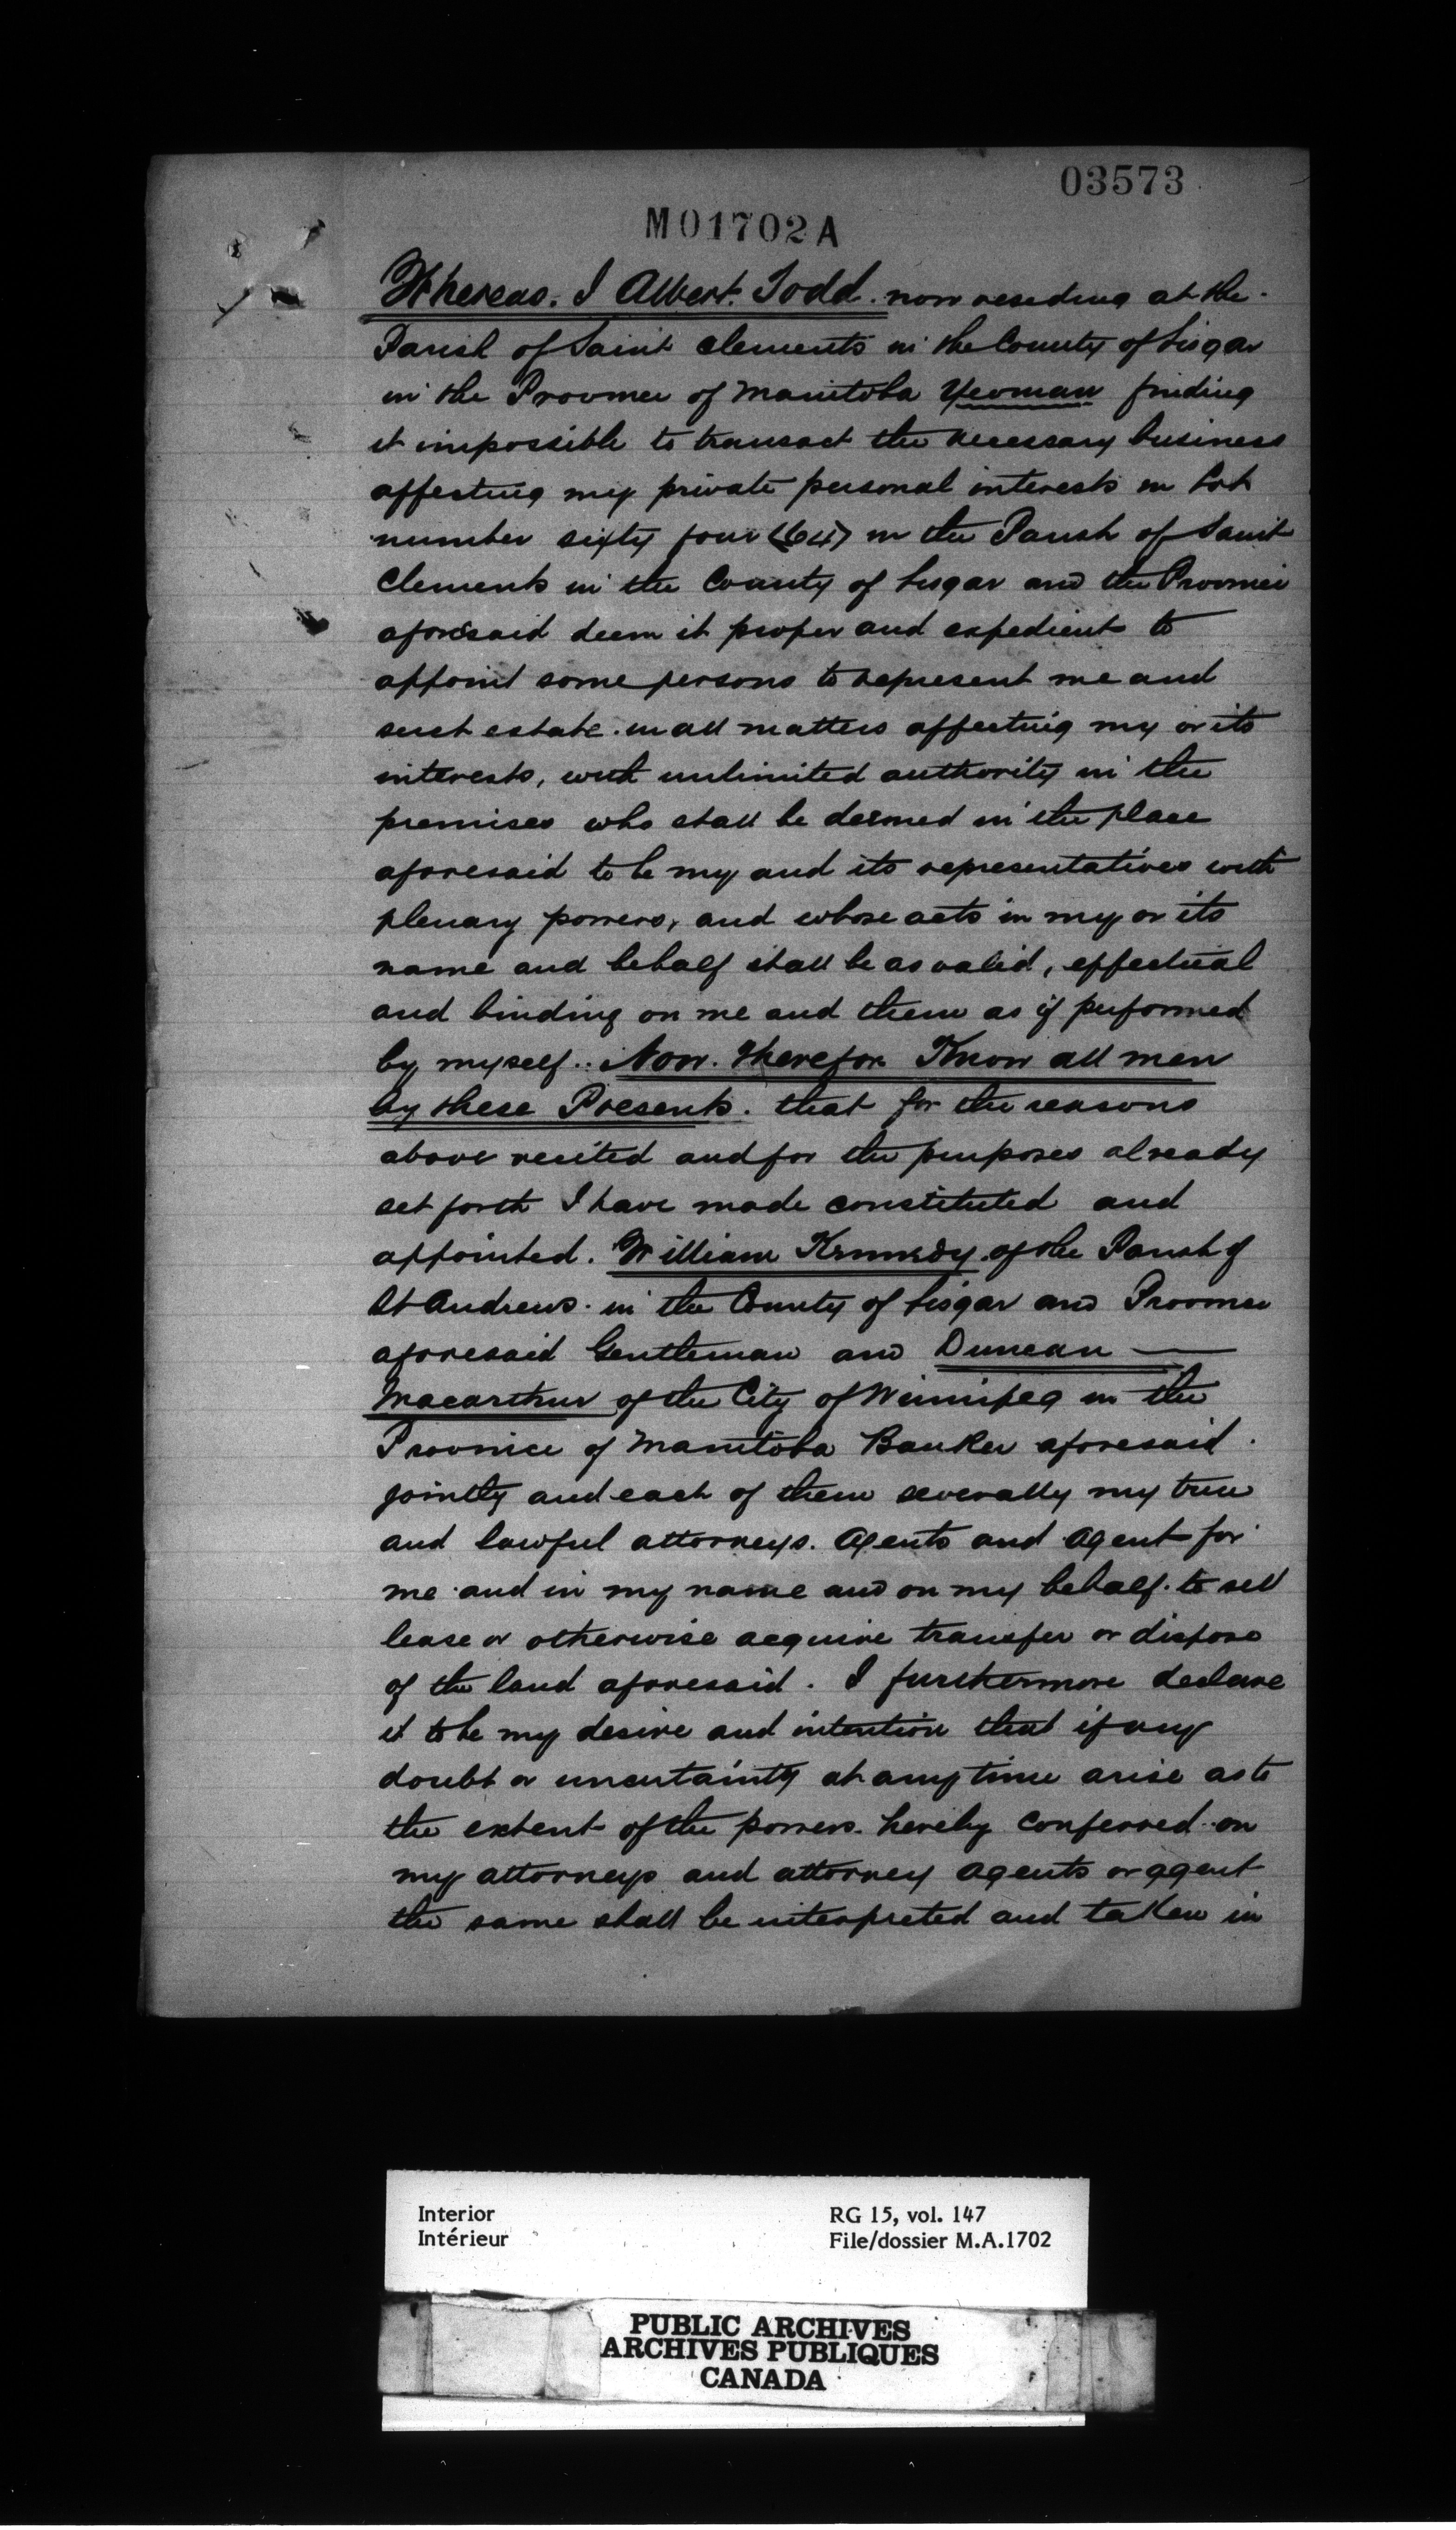 03573
M01702A
Whereas. I Albert. Todd. now residing at the
Parish of Saint Clements in the County of Lisgar
in the Province of Manitoba Yeoman finding
it impossible to transact the necessary business
affecting my private personal interests in Lot
number sixty four (64) in the Parish of Saint
Clements in the County of Lisgar and the Province
aforesaid deem it proper and expedient to
appoint some persons to represent me and
such estate in all matters affecting my or its
interests, with unlimited authority in the
premises who shall be deemed in the place
aforesaid to be my and its representatives with
plenary powers, and whose acts in my or its
name and behalf shall be as valid, effectual
and binding on me and them as if performed
by myself.. Now. Therefor Know all men
by these Presents. that for the reasons
above recited and for the purposes already
set forth I have made constituted and
appointed. William Kennedy of the Parish of
St Andrews. in the County of Lisgar and Province
aforesaid Gentleman and Duncan —
Macarthur of the City of Winnipeg in the
Province of Manitoba Banker aforesaid.
jointly and each of them severally my true
and lawful attorneys. Agents and Agent for
me and in my name and on my behalf. to sell
lease or otherwise acquire transfer or dispose
of the land aforesaid. I furthermore declare
it to be my desire and intention that if any
doubt or uncertainty at any time arise as to
the extent of the powers hereby conferred on
my attorneys and attorney agents or agent
the same shall be interpreted and taken in
Interior
Intérieur
RG 15, vol. 147
File/dossier M.A.1702
PUBLIC ARCHIVES
ARCHIVES PUBLIQUES
CANADA